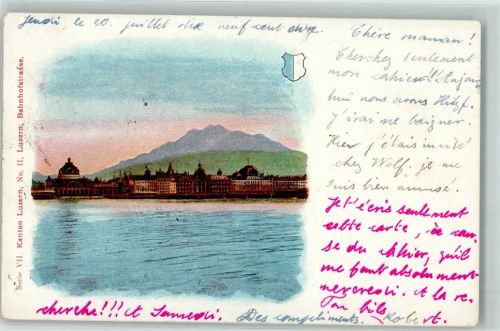 Jeudi le 20 juillet dix neuf cent onze.
Chère maman!
Cherchez seulement
mon cahier!! Aujourd
hui nous avons
J'irai me baigner.
Hier j'étais invité
chez Wolf. je me
suis bien amusé.
Je t'écris seulement
cette carte, à cau-
se du cahier, qu'il
me faut absolument
mercredi. et la re-
cherche!!! et Samedi.
Ton fils
Robert.
Des compliments.
Serie VII. Kanton Luzern, No. II, Luzern, Bahnhofstrasse.